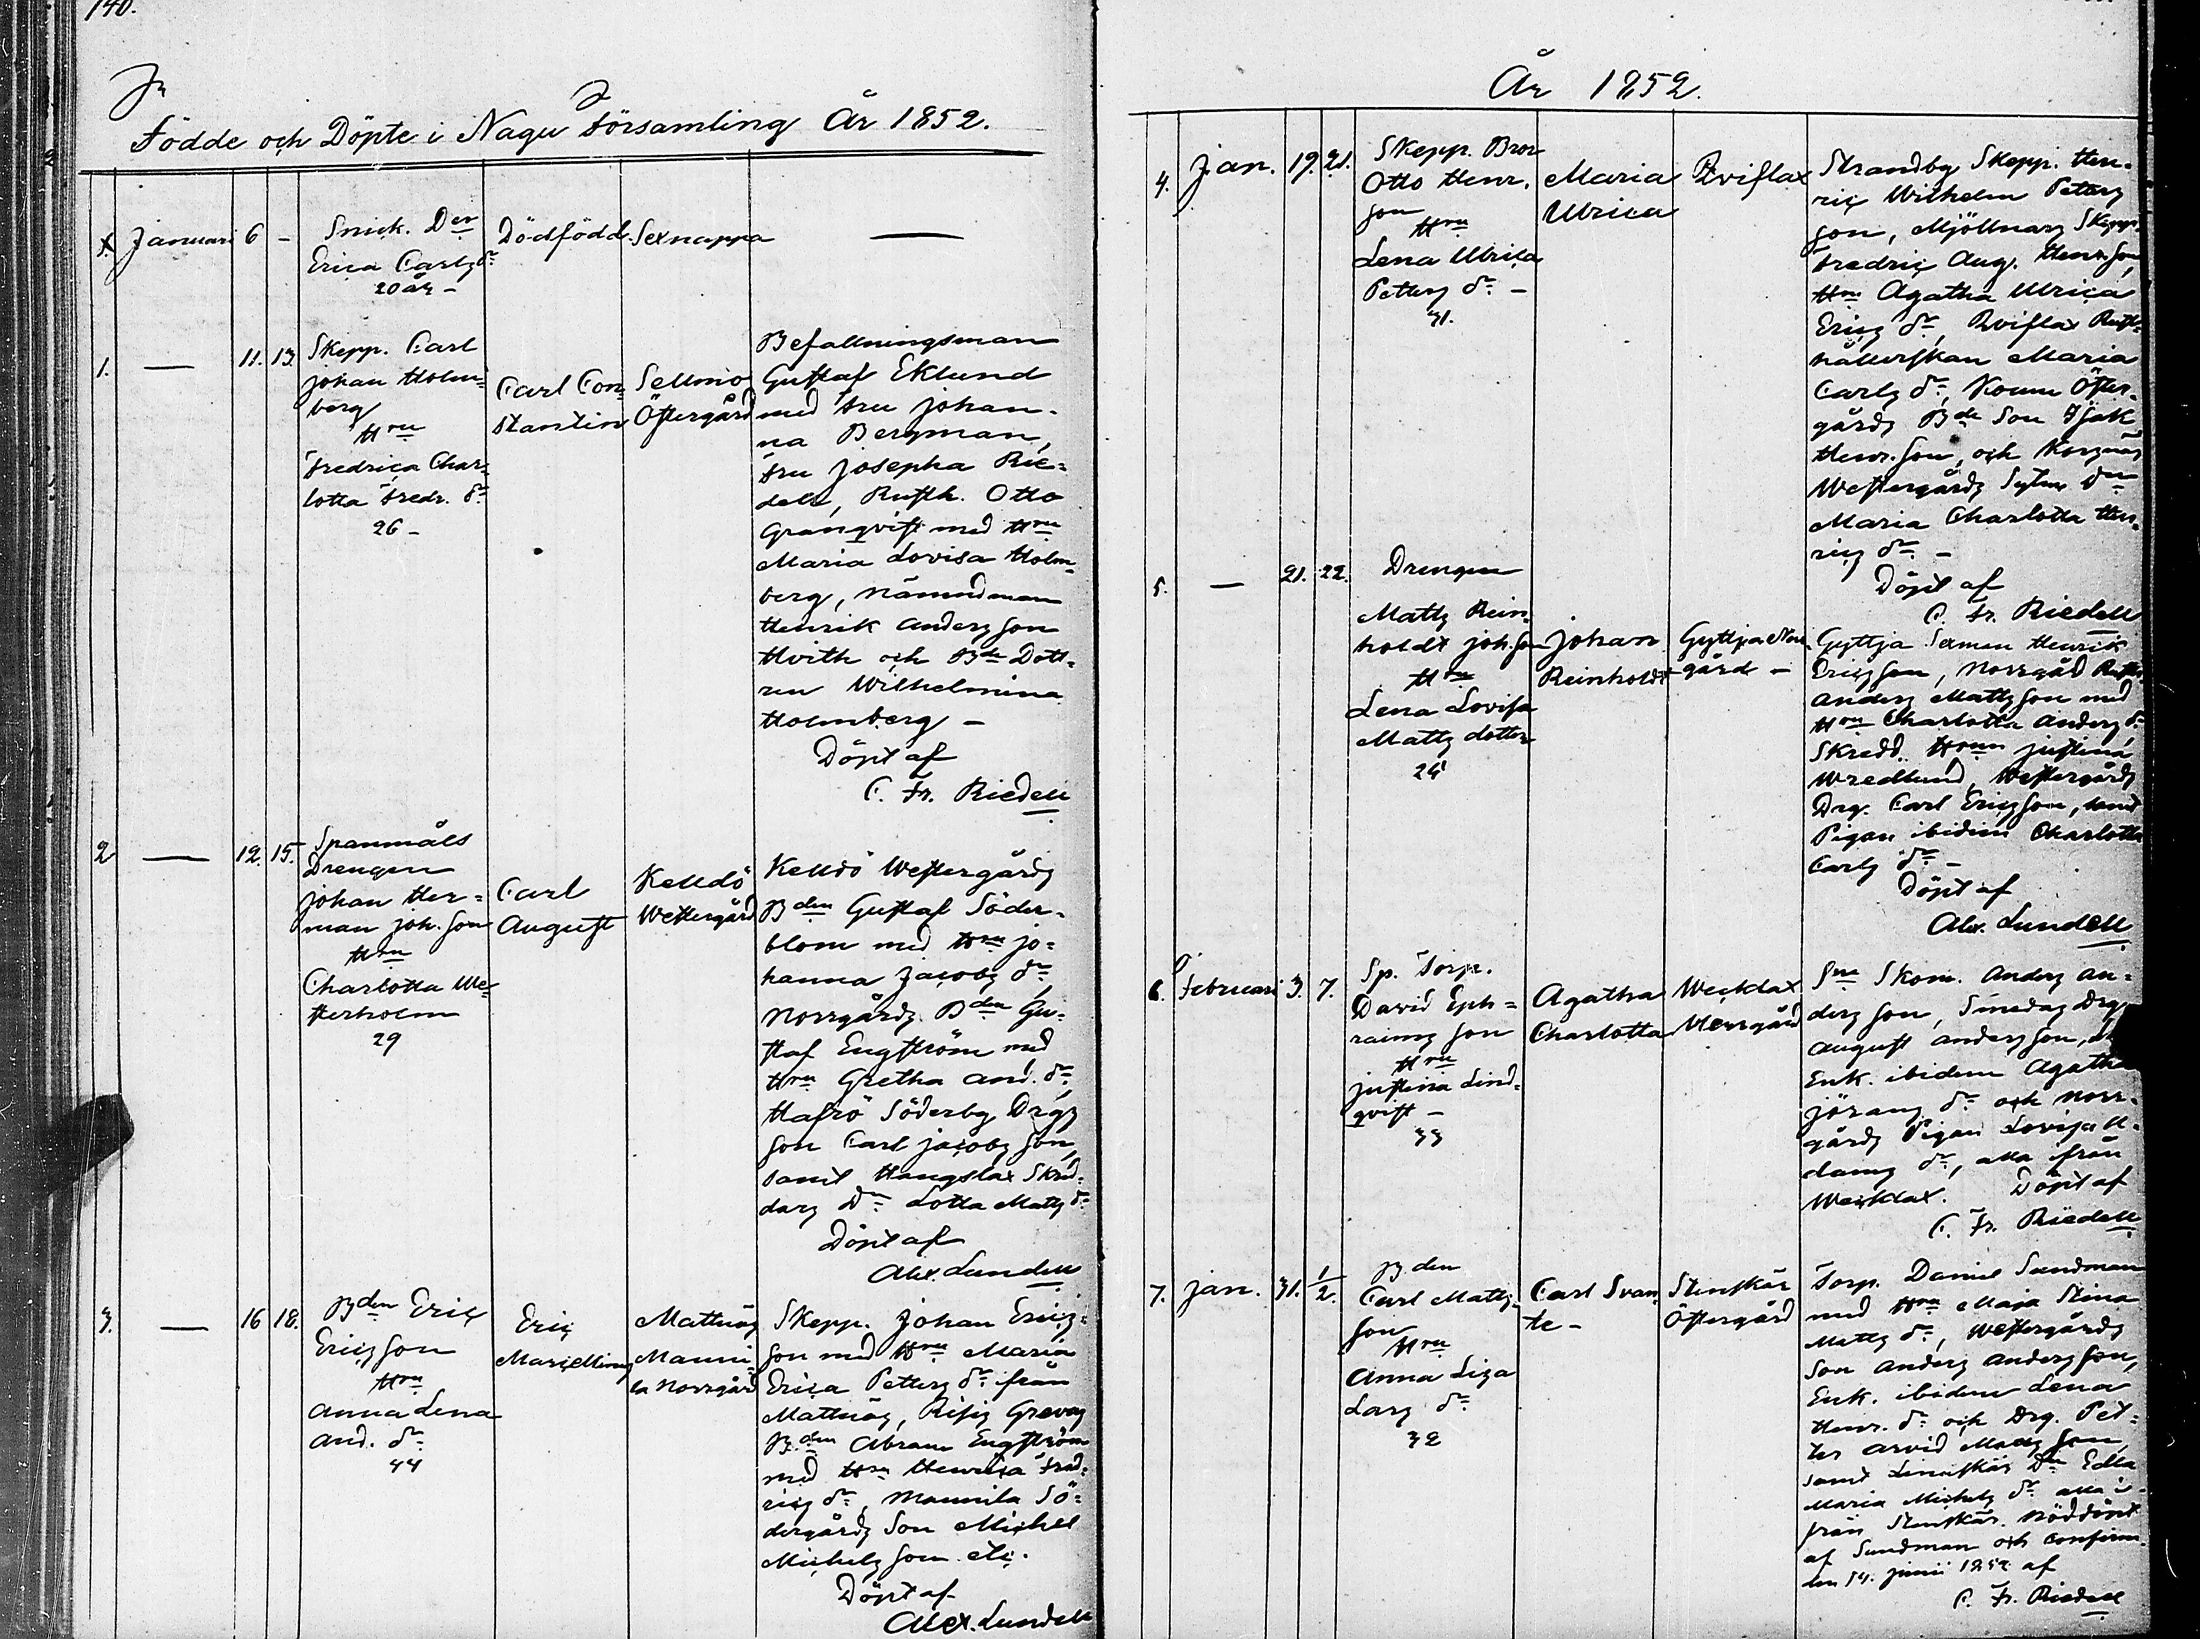 140.
Födde och Döpte i Nagu Församling År 1852.
X. Januari 6 – Snick. Dr Erica Carlsdr 20 år – Dödfödd. Sexnappa —
1. — 11. 13
Skepp. Carl
Johan Holm-
berg
Hru
Fredrica Char-
lotta Fredr. dr
26 –
Carl Con-
stantin
Sellmo
Östergård
Befallningsman
Gustaf Eklund
med Fru Johan-
na Bergman,
Fru Josepha Rie-
dell, Rusth. Otto
Granqvist med Hru
Maria Lovisa Holm-
berg, Nämndman
Henrik Andersson
Hvith och Bde Dott-
ren Wilhelmina
Holmberg –
Döpt af
C. Fr. Riedell
2 — 12. 15.
Spanmåls
Drengen
Johan Her-
man Joh. son
Hru
Charlotta We-
sterholm
29
Carl
August
Kelldö
Westergård
Kelldö Westergårds
Bden Gustaf Söder-
blom med Hru Jo-
hanna Jacobs dr,
Norrgårds Bden Gu-
staf Engström med
Hru Gretha And. dr,
Hafrö Söderby Drgs
Son Carl Jacobsson,
samt Hangslax Skrd-
dars Dr Lotta Matts dr
Döpt af
Alex. Lundell
3. — 16 18.
Bden Eric
Ericsson
Hru
Anna Lena
And. dr
44
Eric
Marcellinus
Mattnäs
Manni-
la Norrgård
Skepp. Johan Erics-
son med Hru Maria
Erica Petters dr från
Mattnäs, Risis Grevas
Bden Abram Engström
med Hru Henrica Fred-
rics dr, Mannila Sö-
dergårds Son Michel
Michelsson etc.
Döpt af
Alex. Lundell
År 1852.
4. Jan. 19. 21.
Skepp. Bror
Otto Henr.
son
Hru
Lena Ulrica
Petters dr –
31.
Maria
Ulrica
Qviflax
Strandby Skepp. Hen-
ric Wilhelm Petters
son, Mjöllnars Skepp.
Fredric Aug. Henr. son,
Hru Agatha Ulrica
Erics dr, Qviflax Rust-
hållerskan Maria
Carls dr, Koum Öster-
gårds Bde Son Isak
Henr. son, och
Westergårds
Maria Charlotta Hen-
rics dr –
Döpt af
C. Fr. Riedell
5. — 21. 22.
Drengen
Matts Rein-
holdt Joh. son
Hru
Lena Lovisa
Matts dotter
24
Johan
Reinholdt
Gyttja Norr-
gård –
Gyttja Henrik
Ericsson, Norrgård
Anders Mattsson med
Hru Charlotta Anders dr
Skredd. Justina
Wredlund, Westergårds
Drg. Carl Ericsson, samt
Pigan ibidem Charlotta
Carls dr –
Döpt af
Alex. Lundell
6. Februari 3. 7.
Sp. Torp.
David Eph-
raims son
Hru
Justina Lind-
qvist –
33
Agatha
Charlotta
Wecklax
Norrgård
Skom. Anders An-
dersson, Smedas Drg
August Andersson,
Enk. ibidem Agatha
Jörans dr och Norr-
gårds Pigan Lovisa A-
dams dr, alla från
Wecklax. Döpt af
C. Fr. Riedell
7. Jan. 31. 1/2.
Bden
Carl Matts-
son
Hru
Anna Lisa
Lars dr
32
Carl Svan-
te –
Stenskär
Östergård
Torp. Daniel Sundman
med Hru Maja Stina
Matts dr, Westergårds
Son Anders Andersson,
Enk. ibidem Lena
Henr. dr och Drg. Pet-
ter Arvid Mattsson
samt Dr Edla
Maria Michels dr alla
från Stenskär. Nöddöpt
af Sundman och confirm.
den 14. Junii 1852 af
C. Fr. Riedell